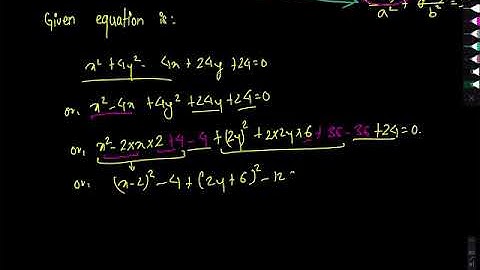 Given equation is:
x²/a² + y²/b² =
x² + 4y² - 4x + 24y + 24 = 0
or, x² - 4x + 4y² + 24y + 24 = 0
or, x² - 2×x×2 + 4 - 4 + (2y)² + 2×2y×6 + 36 - 36 + 24 = 0.
or, (x-2)² - 4 + (2y+6)² - 12 =